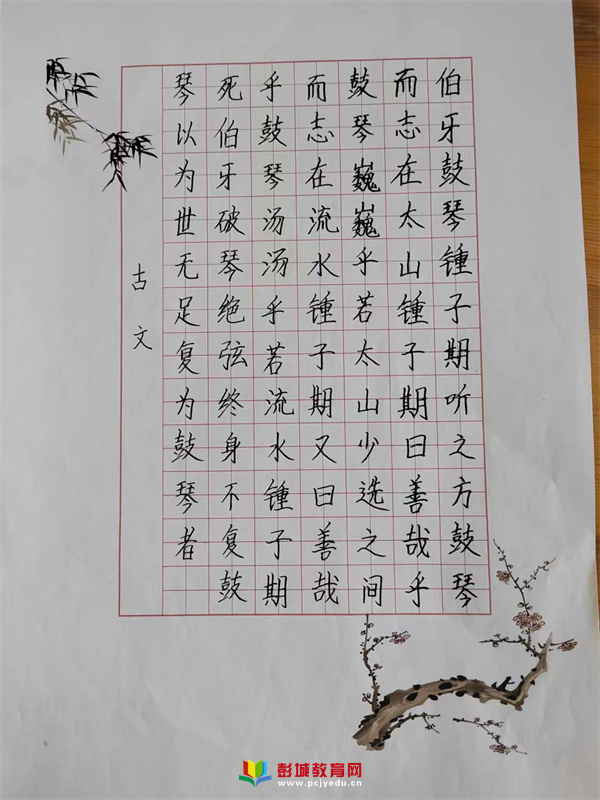 伯牙鼓琴锺子期听之方鼓琴
而志在太山锺子期曰善哉乎
鼓琴巍巍乎若太山少选之间
而志在流水锺子期又曰善哉
乎鼓琴汤汤乎若流水锺子期
死伯牙破琴绝弦终身不复鼓
琴以为世无足复为鼓琴者
古文
彭城教育网
www.pcjyedu.cn